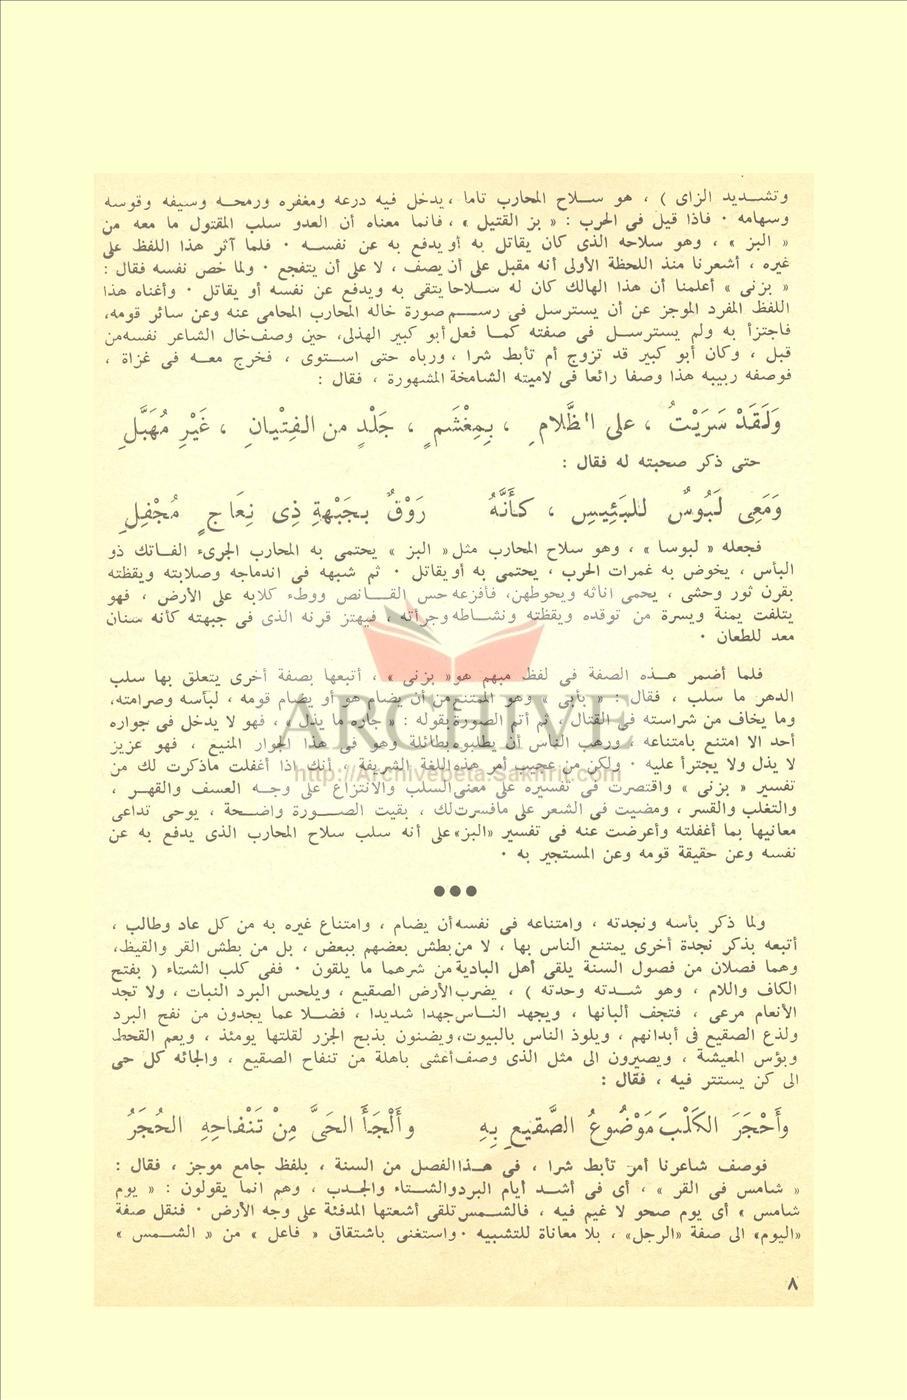 وتشـــديد الزاى ) ، هو ســـلاح المحارب تاما ، يدخل فيه درعه ومغفره ورمحـــه وسيفه وقوسه
وسهامه ٠ فاذا قيل فى الحرب : « بز القتيل » ، فانما معناه أن العدو سلب المقتول ما معه من
« البز » ، وهو سلاحه الذى كان يقاتل به أو يدفع به عن نفســـه ٠ فلما آثر هذا اللفظ على
غيره ، أشعرنا منذ اللحظة الأولى أنه مقبل على أن يصف ، لا على أن يتفجع ٠ ولما خص نفسه فقال :
« بزنى » أعلمنا أن هذا الهالك كان له ســـلاحا يتقى به ويدفع عن نفسه أو يقاتل ٠ وأغناه هذا
اللفظ المفرد الموجز عن أن يسترسل فى رســـم صورة خاله المحارب المحامى عنه وعن سائر قومه،
فاجتزأ به ولم يسترســـل فى صفته كمـــا فعل أبو كبير الهذلى، حين وصف خال الشاعر نفسه من
قبل ، وكان أبو كبير قد تزوج أم تأبط شرا ، ورباه حتى اســـتوى ، فخرج معـــه فى غزاة ،
فوصفه ربيبه هذا وصفا رائعا فى لاميته الشامخة المشهورة ، فقال :
وَلَقَدْ سَرَيْتُ ، على الظَّلامِ ، بِمِغْشَمٍ ، جَلْدٍ من الفِتْيانِ ، غَيْرِ مُهَبَّلِ
حتى ذكر صحبته له فقال :
وَمَعِى لَبُوسٌ للبَئِيسِ ، كأَنَّهُ رَوْقٌ بجَبْهةِ ذِى نِعَاجٍ مُجْفِلِ
فجعله « لبوسا » ، وهو سلاح المحارب مثل « البز » يحتمى به المحارب الجرىء الفـــاتك ذو
البأس ، يخوض به غمرات الحرب ، يحتمى به أو يقاتل ٠ ثم شبهه فى اندماجه وصلابته ويقظته
بقرن ثور وحشى ، يحمى اناثه ويحوطهن، فأفزعه حس القـــانص ووطء كلابه على الأرض ، فهو
يتلفت يمنة ويسرة من توقده ويقظته ونشـــاطه وجرأته ، فيهتز قرنه الذى فى جبهته كأنه سنان
معد للطعان ٠
فلما أضمر هـــذه الصفة فى لفظ مبهم هو « بزنى » ، أتبعها بصفة أخرى يتعلق بها سلب
الدهر ما سلب ، فقال : « بأبى » ، وهو الممتنع من أن يضام هو أو يضام قومه ، لبأسه وصرامته،
وما يخاف من شراسته فى القتال ٠ ثم أتم الصورة بقوله : « جاره ما يذل » ، فهو لا يدخل فى جواره
أحد الا امتنع بامتناعه ، ورهب الناس أن يطلبوه بطائلة وهو فى هذا الجوار المنيع ، فهو عزيز
لا يذل ولا يجترأ عليه ٠ ولكن من عجيب أمر هذه اللغة الشريفة ، أنك اذا أغفلت ما ذكرت لك من
تفسير « بزنى » واقتصرت فى تفسيره على معنى السلب والانتزاع على وجـــه العسف والقهـــر ،
والتغلب والقسر ، ومضيت فى الشعر على ما فسرت لك ، بقيت الصـــورة واضـــحة ، يوحى تداعى
معانيها بما أغفلته وأعرضت عنه فى تفسير «البز» على أنه سلب سلاح المحارب الذى يدفع به عن
نفسه وعن حقيقة قومه وعن المستجير به ٠
●●●
ولما ذكر بأسه ونجدته ، وامتناعه فى نفسه أن يضام ، وامتناع غيره به من كل عاد وطالب ،
أتبعه بذكر نجدة أخرى يمتنع الناس بها ، لا من بطش بعضهم ببعض ، بل من بطش القر والقيظ،
وهما فصلان من فصول السنة يلقى أهل البادية من شرهما ما يلقون ٠ ففى كلب الشتاء ( بفتح
الكاف واللام ، وهو شـــدته وحدته ) ، يضرب الأرض الصقيع ، ويلحس البرد النبات ، ولا تجد
الأنعام مرعى ، فتجف ألبانها ، ويجهد النـــاس جهدا شديدا ، فضـــلا عما يجدون من نفح البرد
ولذع الصقيع فى أبدانهم ، ويلوذ الناس بالبيوت، ويضنون بذبح الجزر لقلتها يومئذ ، ويعم القحط
وبؤس المعيشة ، ويصيرون الى مثل الذى وصف أعشى باهلة من تنفاح الصقيع ، والجائه كل حى
الى كن يستتر فيه ، فقال :
وأَحْجَرَ الكَلْبَ مَوْضُوعُ الصَّقيعِ بِهِ وأَلْجَأَ الحَىَّ مِنْ تَنْفاحِهِ الحُجَرُ
فوصف شاعرنا أمر تأبط شرا ، فى هـــذا الفصل من السنة ، بلفظ جامع موجز ، فقال :
« شامس فى القر » ، أى فى أشـــد أيام البرد والشـــتاء والجـــدب ، وهم انما يقولون : « يوم
شامس » أى يوم صحو لا غيم فيه ، فالشـــمس تلقى أشعتها المدفئة على وجه الأرض ٠ فنقل صفة
«اليوم» الى صفة «الرجل» ، بلا معاناة للتشبيه ٠ واستغنى باشتقاق « فاعل » من « الشـــمس »
٨
ARCHIVE
http://Archivebeta.Sakhrit.com